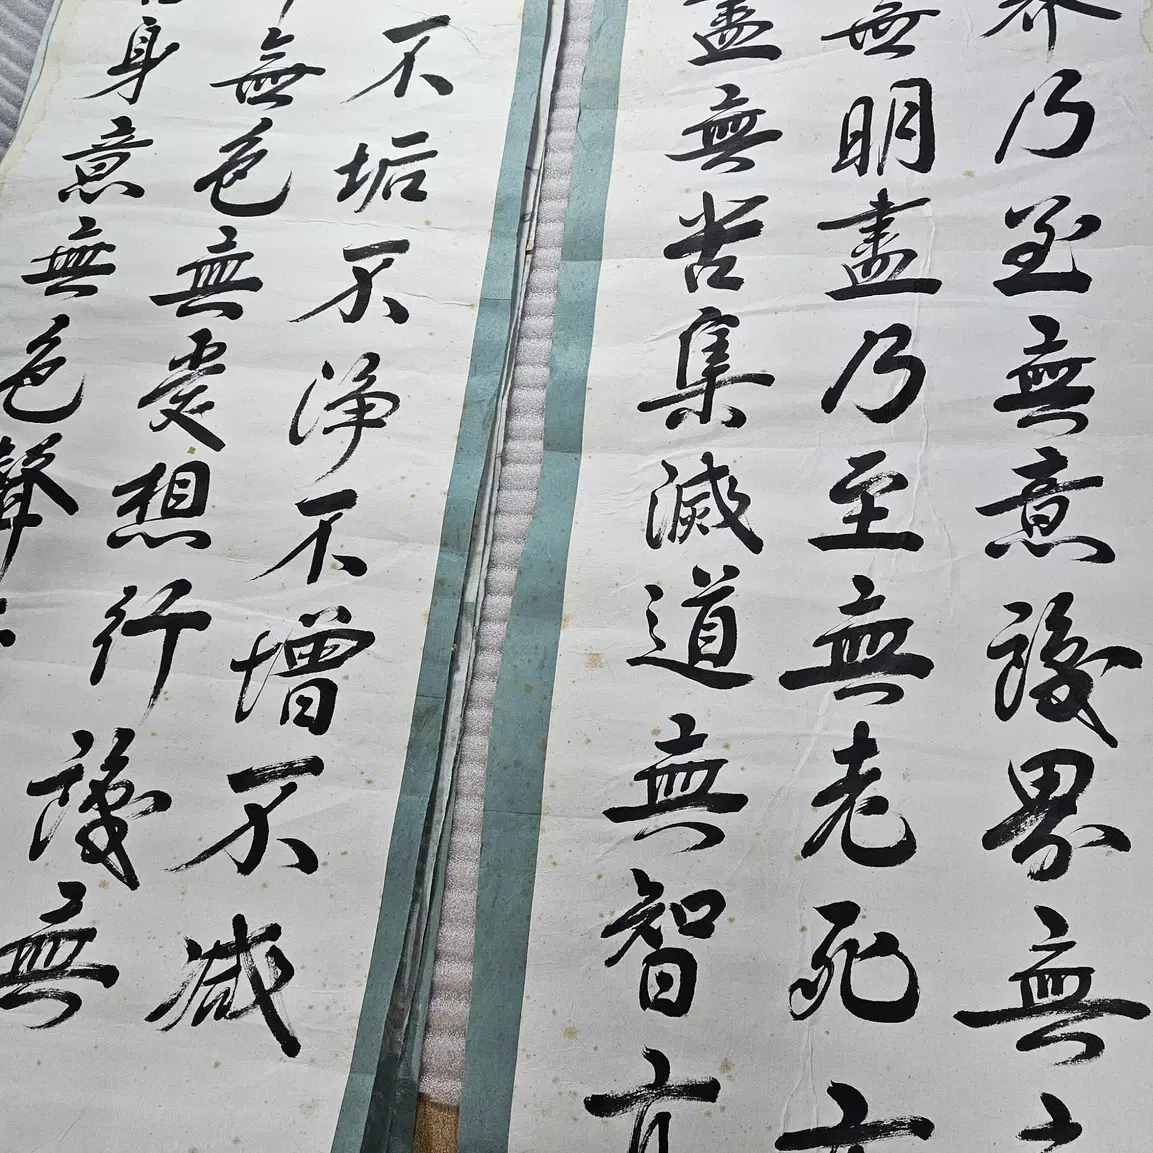 界乃至無意識界無
無明盡乃至無老死亦
盡無苦集滅道無智亦
不垢不淨不增不減
無色無受想行識無
身意無色聲